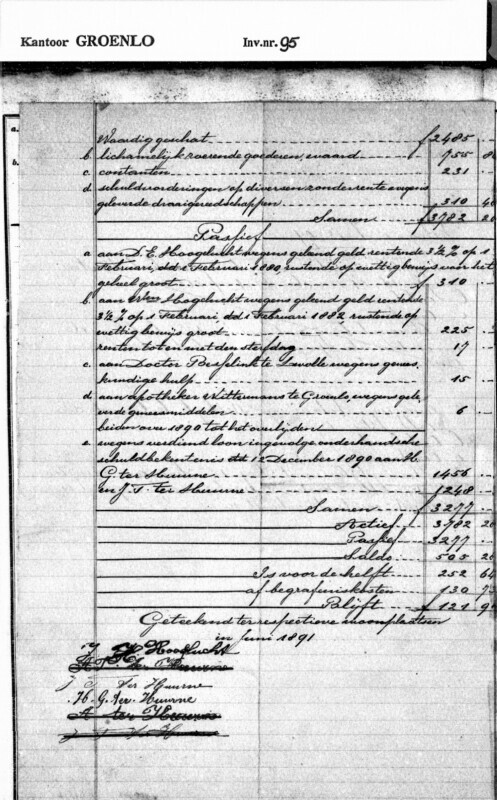 Kantoor GROENLO Inv.nr. 95
a.
Waardig geschat f 2485
b. lichamelijk roerende goederen, waard 755 8
c contanten 231
d schuldvorderingen op diversen zonder rente wegens
geleverde draaigereedschappen 310 40
Samen f 3782 20
Passief
a aan D.E. Hoogelucht wegens geleend geld rentende 3½ % op 1
Februari, dd 1 Februari 1880, rustende op wettig bewijs voor het
geheel groot f 310
b. aan Hoogelucht wegens geleend geld rentende
3½ % op 1 Februari, dd 1 Februari 1882 rustende op
wettig bewijs groot 225
renten tot en met den sterfdag 17
c. aan Doctor Besselink te wegens genees
kundige hulp 15
d. aan apotheker Wittermans te Groenlo, wegens gele
verde geneesmiddelen 6
beiden over 1890 tot het overlijden
e wegens verdiend loon ingevolge onderhandsche
schuldbekentenis dd 12 December 1890 aan
G. ter Huurne 1456
en J. T. ter Huurne 1248
Samen f 3277
Actief 3782 20
Passief 3277
Saldo 505 20
Is voor de helft 252 64
af begrafeniskosten 130 73
Blijft f 121 9
Geteekend ter respectieve woonplaatsen
in Juni 1891
H Hooflucht
ter Huurne
J ter Huurne
H. G. ter Huurne
A ter Huurne